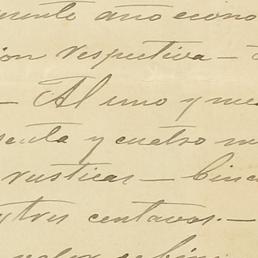 año econo
ion respectiva —
— Al uno y me
senta y cuatro m
rusticas — Cinc
y tres centavos. —